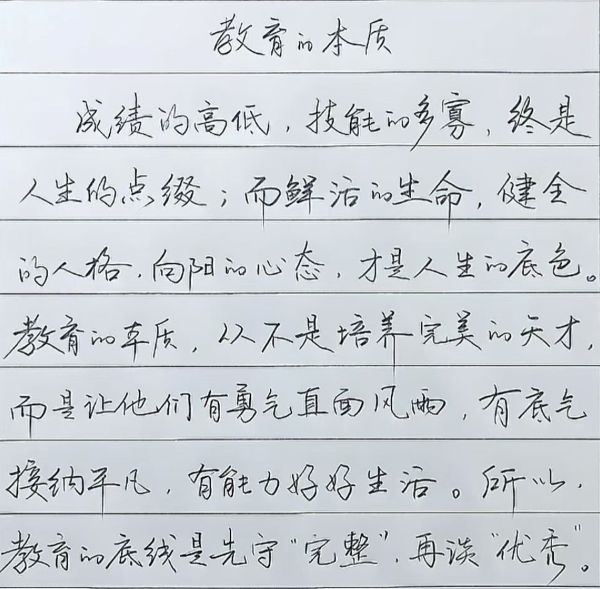 教育的本质
成绩的高低，技能的多寡，终是
人生的点缀；而鲜活的生命，健全
的人格，向阳的心态，才是人生的底色。
教育的本质，从不是培养完美的天才，
而是让他们有勇气直面风雨，有底气
接纳平凡，有能力好好生活。所以，
教育的底线是先守“完整”，再谈“优秀”。